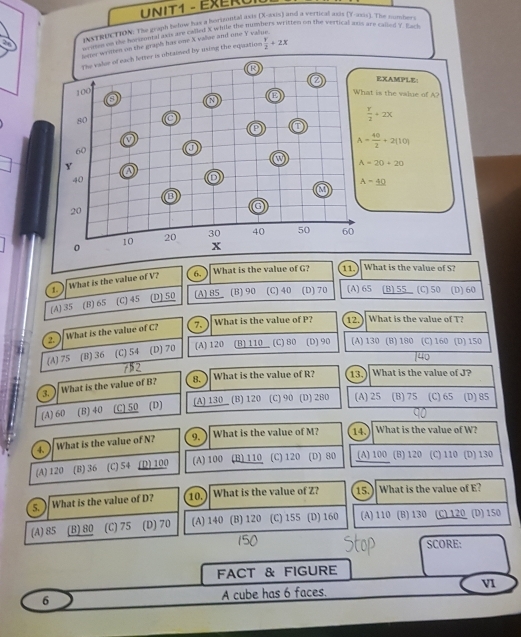 UNIT1 - EXERCISE
INSTRUCTION: The graph below has a horizontal axis (X-axis) and a vertical axis (Y-axis). The numbers
written on the horizontal axis are called X while the numbers written on the vertical axis are called Y. Each
letter written on the graph has one X value and one Y value.
The value of each letter is obtained by using the equation Y/2 + 2X
100
80
60
Y
40
20
0
10 20 30 40 50 60
X
S
R
Z
N
E
C
P
T
V
J
W
A
D
B
M
G
EXAMPLE:
What is the value of A?
Y/2 + 2X
A = 40/2 + 2(10)
A = 20 + 20
A = 40
1. What is the value of V?
(A) 35 (B) 65 (C) 45 (D) 50
2. What is the value of C?
(A) 75 (B) 36 (C) 54 (D) 70
3. What is the value of B?
(A) 60 (B) 40 (C) 50 (D)
4. What is the value of N?
(A) 120 (B) 36 (C) 54 (D) 100
5. What is the value of D?
(A) 85 (B) 80 (C) 75 (D) 70
6. What is the value of G?
(A) 85 (B) 90 (C) 40 (D) 70
7. What is the value of P?
(A) 120 (B) 110 (C) 80 (D) 90
8. What is the value of R?
(A) 130 (B) 120 (C) 90 (D) 280
9. What is the value of M?
(A) 100 (B) 110 (C) 120 (D) 80
10. What is the value of Z?
(A) 140 (B) 120 (C) 155 (D) 160
150
11. What is the value of S?
(A) 65 (B) 55 (C) 50 (D) 60
12. What is the value of T?
(A) 130 (B) 180 (C) 160 (D) 150
140
13. What is the value of J?
(A) 25 (B) 75 (C) 65 (D) 85
90
14. What is the value of W?
(A) 100 (B) 120 (C) 110 (D) 130
15. What is the value of E?
(A) 110 (B) 130 (C) 120 (D) 150
Stop
SCORE:
FACT & FIGURE
A cube has 6 faces.
6
VI